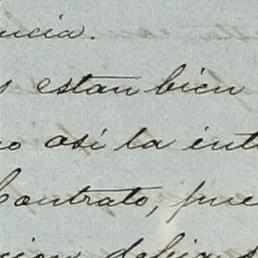 ncia.
s estan bien
o así la int
Contrato, pue
cion debia s